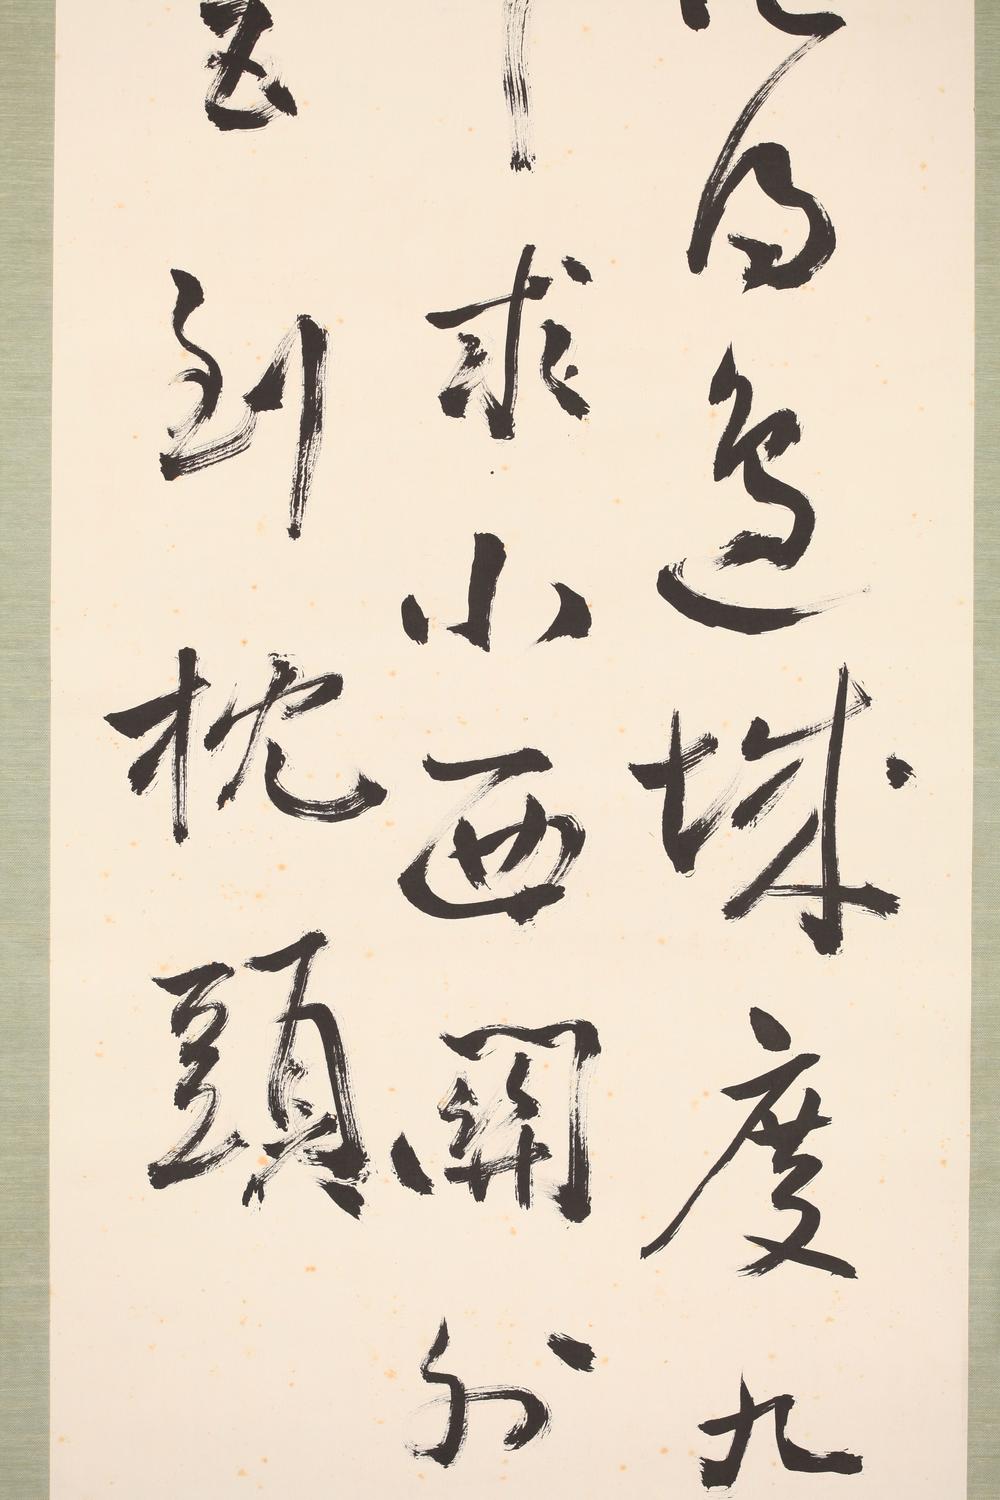 邊城度九
求小西關外
到枕頭